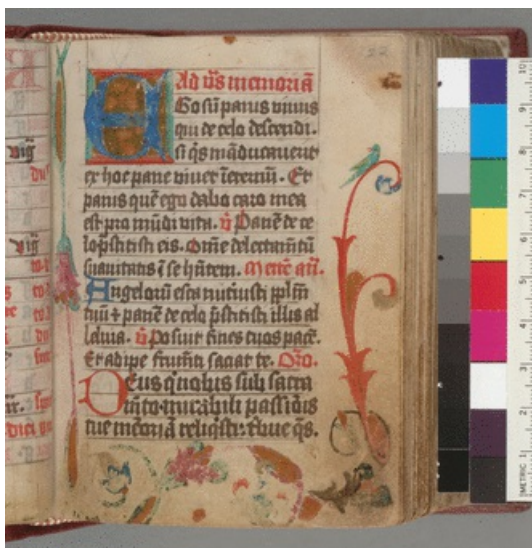 22
Ad v̄s memoriā
Ego sū panis vivus
qui de celo descendi.
si q̄s māducaverit
ex hoc pane vivet ī eternū. Et
panis quē ego dabo caro mea
est pro mūdi vita. v̄ Panē de ce
lo p̄stitisti eis. Om̄e delectam̄tū
suavitatis ī se hn̄tem.
Angelorū esca nutristi pp̄lm̄
tuū + panē de celo p̄stitisti illis al
leluia. v̄ Posuit fines tuos pacē.
Et adipe frum̄ti saciat te. Or̄o.
Deus q̄ nobis sub sacra
m̄to mirabili passiōis
tue memoriā reliq̄sti. t̄bue q̄s.
vig̃
vig̃
METRIC 1
2
3
4
5
6
7
8
9
10